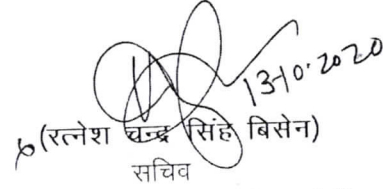 13-10-2020
(रत्नेश चन्द्र सिंह बिसेन)
सचिव